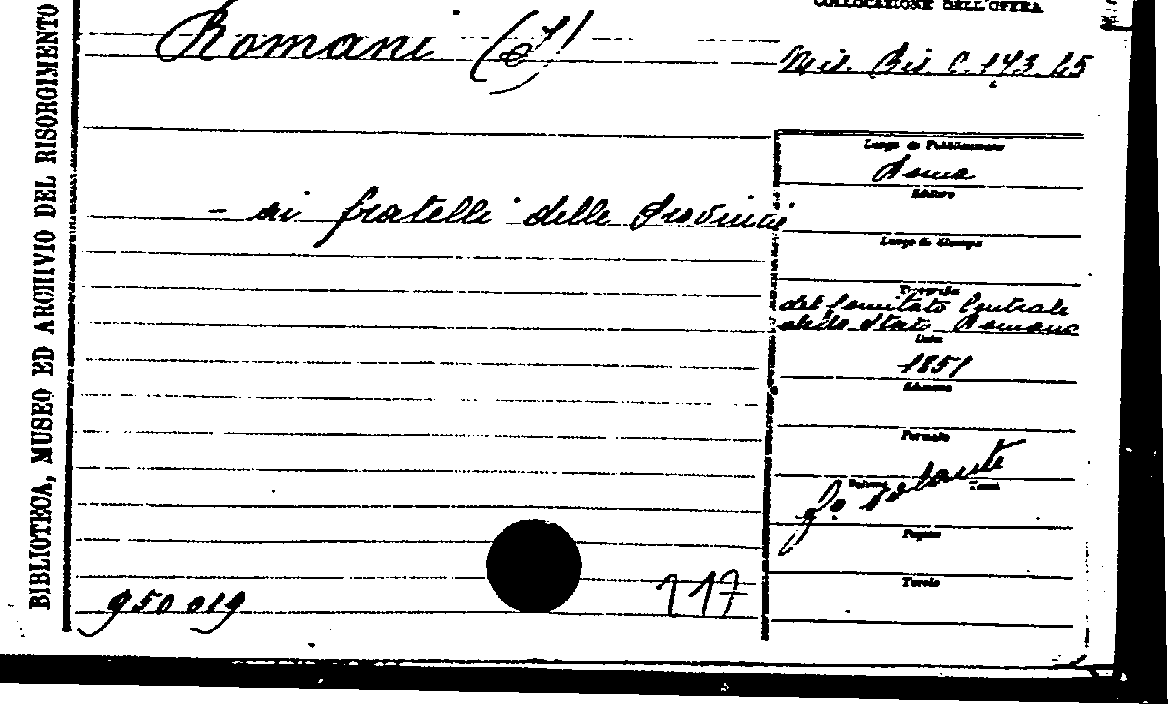 BIBLIOTECA, MUSEO ED ARCHIVIO DEL RISORGIMENTO
COLLOCAZIONE DELL'OPERA
Romani (I)
Mis. Ris. C. 143. 25
- ai fratelli delle Provincie
Luogo di Pubblicazione
Roma
Editore
Luogo di Stampa
Tipografia
del Comitato Centrale
dello Stato Romano
Data
1851
Edizione
Formato
Volume Tomi
f.º volante
Pagine
Tavole
950019
117